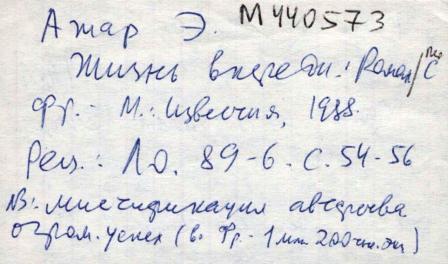 Ажар Э. М440573
Жизнь впереди: Роман/Пер с
Фр. - М.: Известия, 1988.
Рец.: ЛО. 89-6. С. 54-56
NB: мистификация авторства
огром. успех (в Фр. - 1 млн 200 тыс. экз)